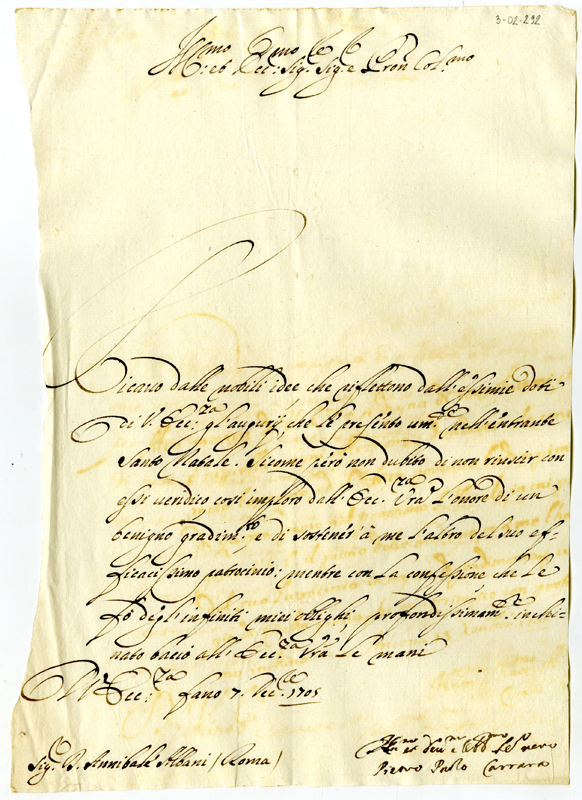 3-02-292
Ill.mo et Ecc.mo Sig.re Sig.re e Pron Col.mo
Ricavo dalle nobili idee che riflettono dall'essimie doti
di V. Ecc.za gl'augurij, che Le presento um.te nell'entrante
Santo Natale. Sicome però non dubito di non riuscir con
essi veridico così imploro dall'Ecc.za Vra L'onore di un
benigno gradim.to, e di sostener à me l'altro del suo ef-
ficacissimo patrocinio: mentre con la confessione, che Le
fò degl'infiniti miei obblighi, profondissimam.te inchi-
nato bacio all'Ecc.za Vra Le mani
D V Ecc.za Fano 7. Xbre 1705
Sig.r D. Annibale Albani (Roma)
Um.mo et Dev.mo e Obb.mo Servo vero
Pietro Paolo Carrara